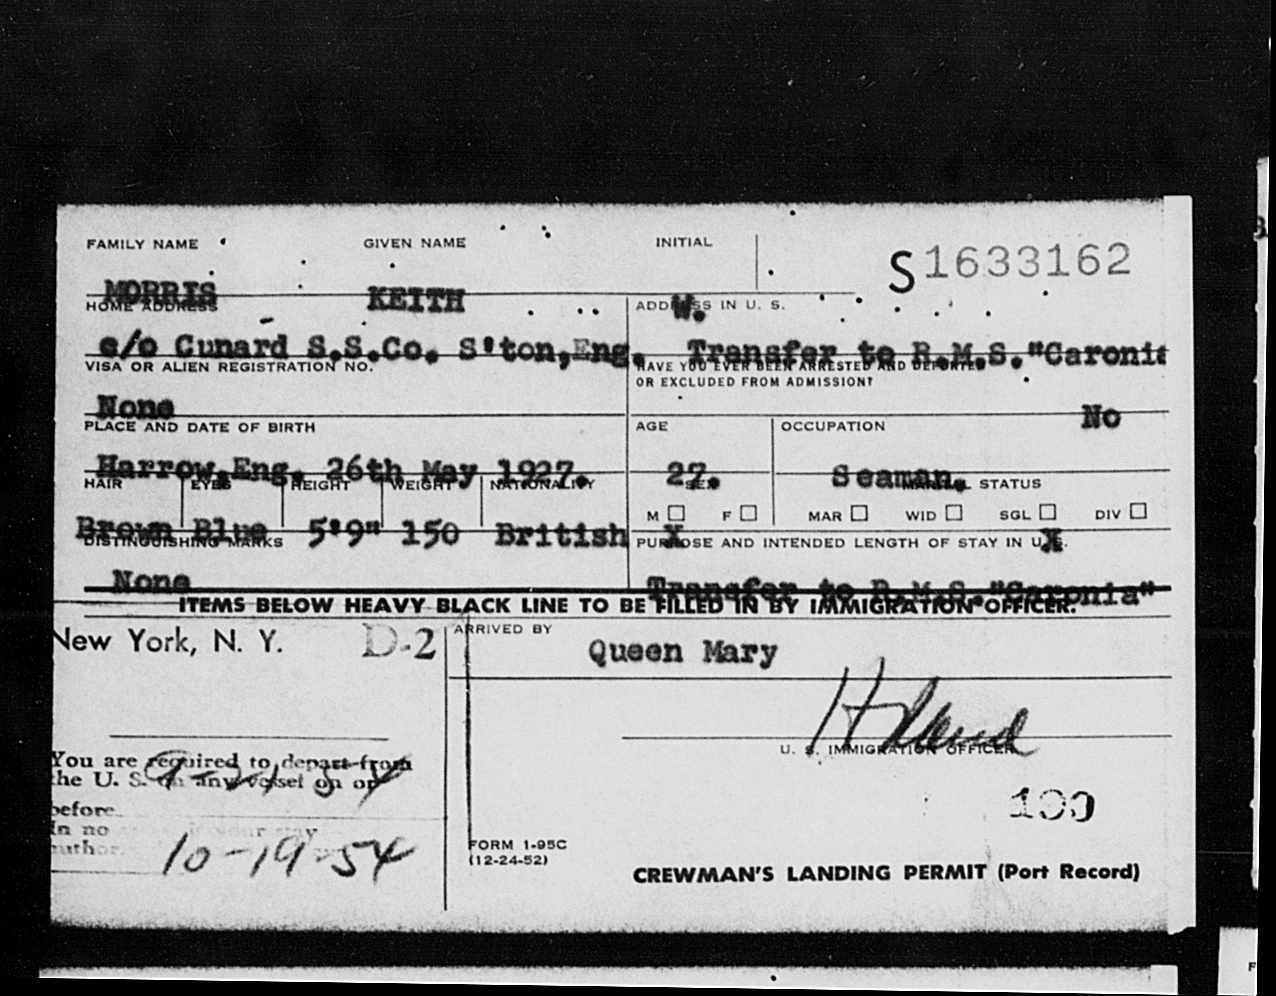 FAMILY NAME GIVEN NAME INITIAL
S1633162
MORRIS KEITH W.
HOME ADDRESS ADDRESS IN U. S.
c/o Cunard S.S.Co. S'ton,Eng. Transfer to R.M.S."Caronia
VISA OR ALIEN REGISTRATION NO. HAVE YOU EVER BEEN ARRESTED AND DEPORTED
OR EXCLUDED FROM ADMISSION?
None No
PLACE AND DATE OF BIRTH AGE OCCUPATION
Harrow,Eng. 26th May 1927. 27. Seaman.
HAIR EYES HEIGHT WEIGHT NATIONALITY SEX MARITAL STATUS
M F MAR WID SGL DIV
Brown Blue 5'9" 150 British X X
DISTINGUISHING MARKS PURPOSE AND INTENDED LENGTH OF STAY IN U.S.
None Transfer to R.M.S."Caronia"
ITEMS BELOW HEAVY BLACK LINE TO BE FILLED IN BY IMMIGRATION OFFICER.
New York, N. Y. D-2 ARRIVED BY
Queen Mary
U. S. IMMIGRATION OFFICER
You are required to depart from
the U. S. on any vessel on or
before
In no your stay
author
10-19-54
100
FORM I-95C
(12-24-52)
CREWMAN'S LANDING PERMIT (Port Record)